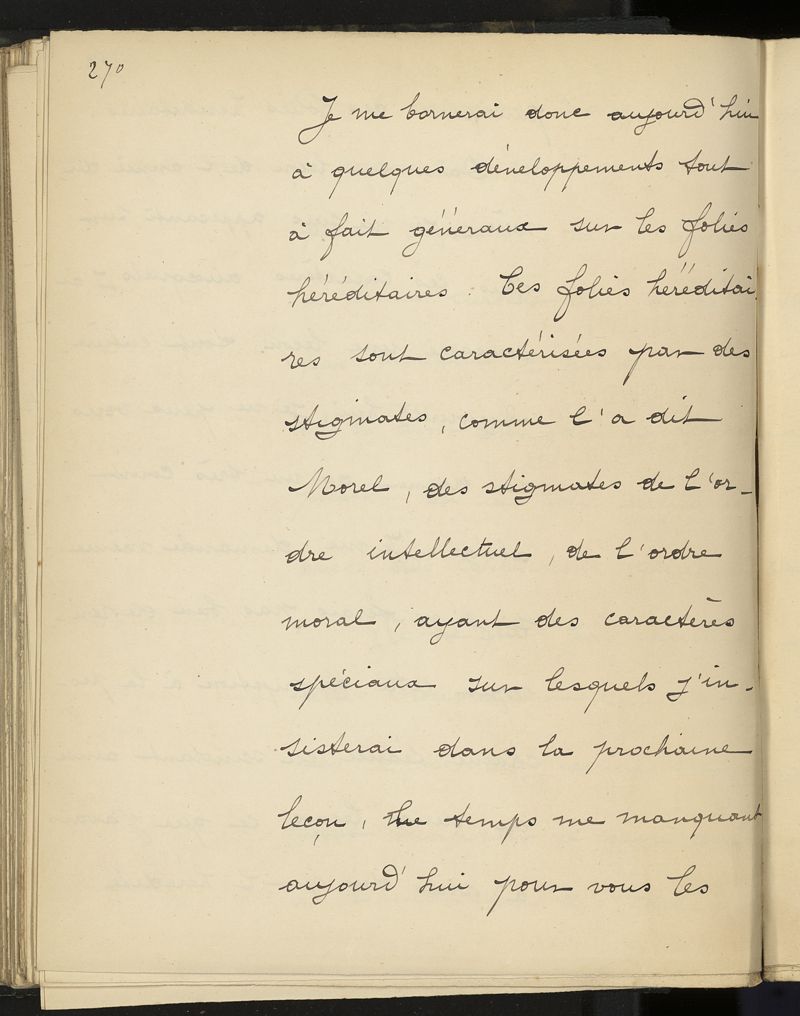 270
Je me bornerai donc aujourd'hui
à quelques développements tout
à fait généraux sur les folies
héréditaires. Ces folies héréditai
res sont caractérisées par des
stigmates, comme l'a dit
Morel, des stigmates de l'or-
dre intellectuel, de l'ordre
moral, ayant des caractères
spéciaux sur lesquels j'in-
sisterai dans la prochaine
leçon, le temps me manquant
aujourd'hui pour vous les